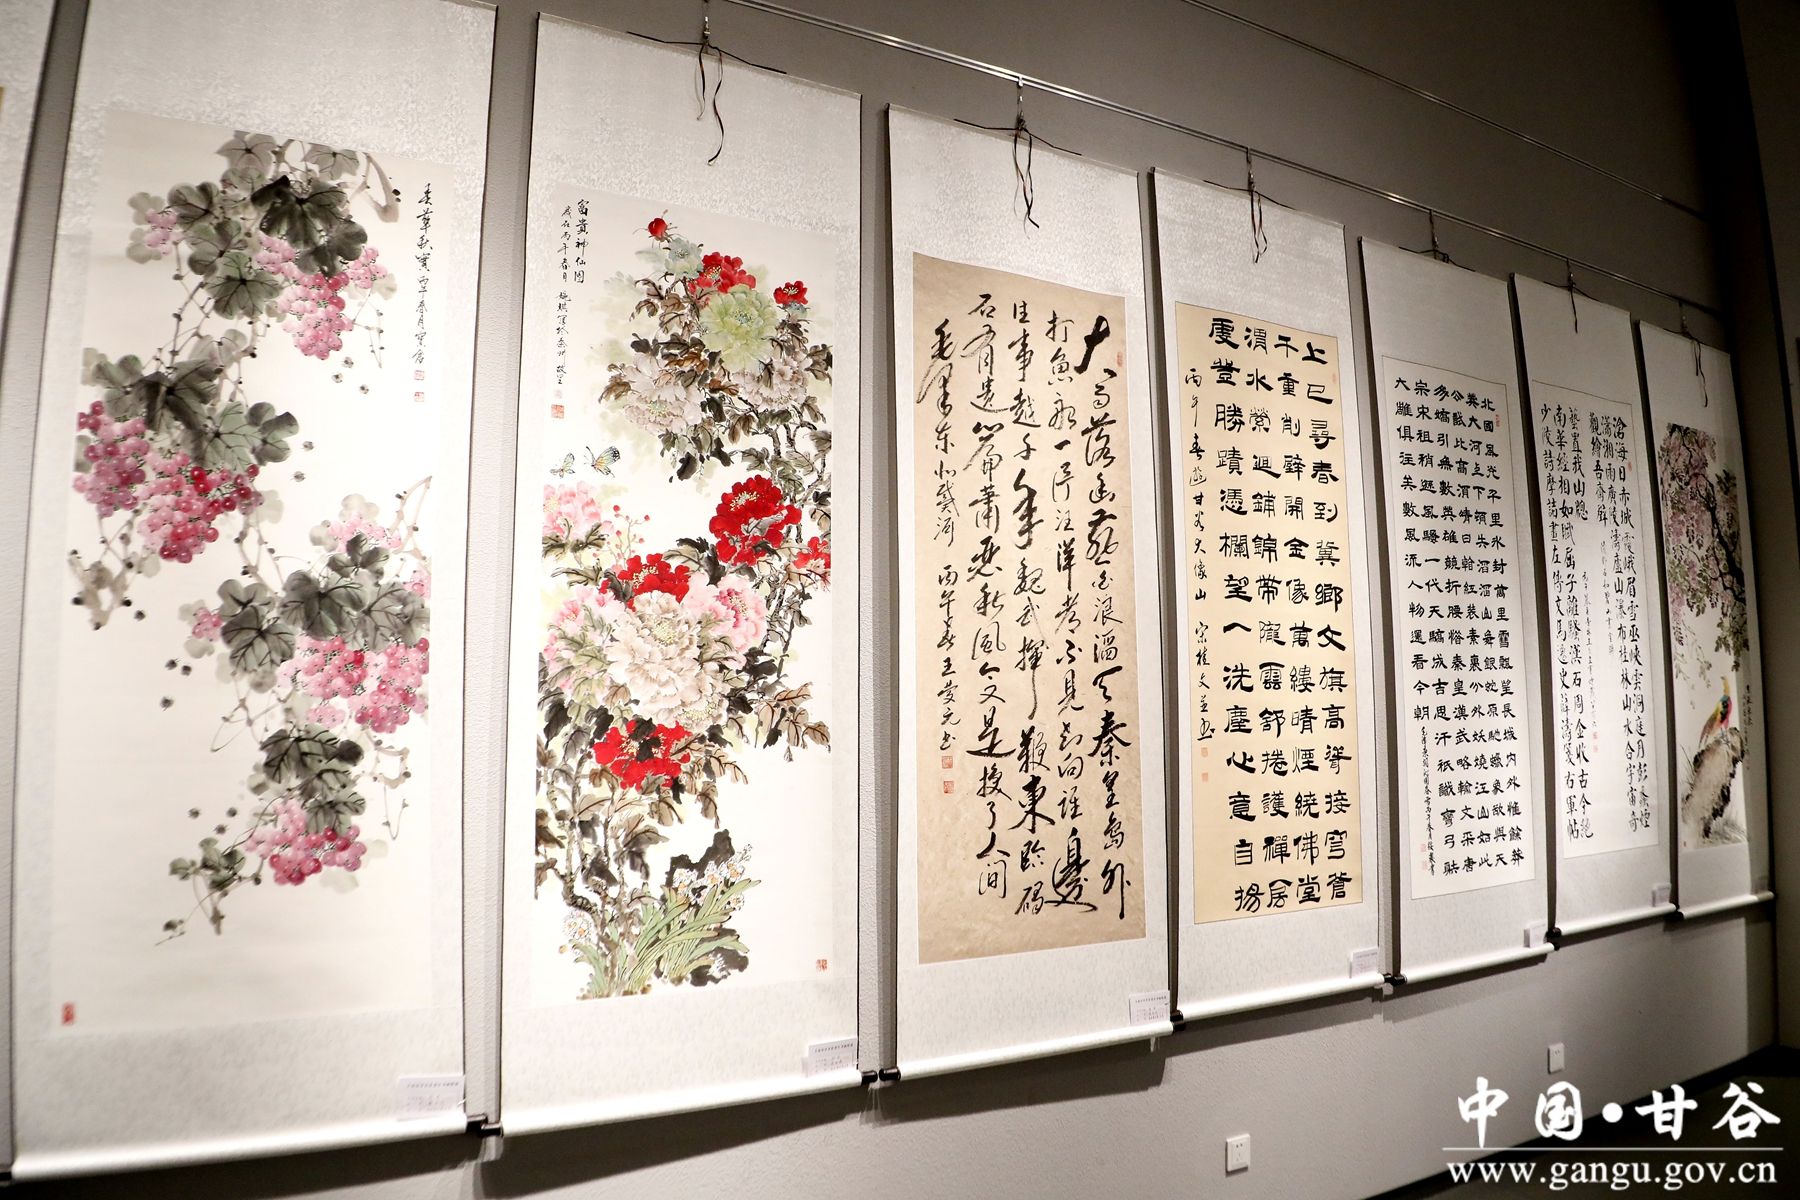 春華秋實 丙午春月
富貴神仙圖
歲在丙午春月
大雨落幽燕白浪滔天秦皇島外
打魚船一片汪洋都不見知向誰邊
往事越千年魏武揮鞭東臨碣
石有遺篇蕭瑟秋風今又是換了人間
毛澤東北戴河 丙午春王發元書
上巳尋春到冀鄉文旗高聳接穹蒼
千重削壁開金像萬縷晴煙繞佛堂
渭水縈迴鋪錦帶隴雲舒捲護禪居
虔登勝蹟憑欄望一洗塵心意自揚
丙午春遊甘谷大像山 宋桂文並書
北國風光千里冰封萬里雪飄望長城內外惟餘莽
莽大河上下頓失滔滔山舞銀蛇原馳蠟象欲與天
公試比高須晴日看紅裝素裹分外妖嬈江山如此
多嬌引無數英雄競折腰惜秦皇漢武略輸文采唐
宗宋祖稍遜風騷一代天驕成吉思汗祇識彎弓射
大雕俱往矣數風流人物還看今朝
滄海日赤城霞峨眉雪巫峽雲洞庭月彭蠡煙
瀟湘雨廣陵濤廬山瀑布桂林山水合宇宙奇
觀繪吾齋壁
少陵詩摩詰畫左傳文馬遷史薛濤箋右軍帖
南華經相如賦屈子離騷漢石周金收古今絕
藝置我山牕
中国·甘谷
www.gangu.gov.cn